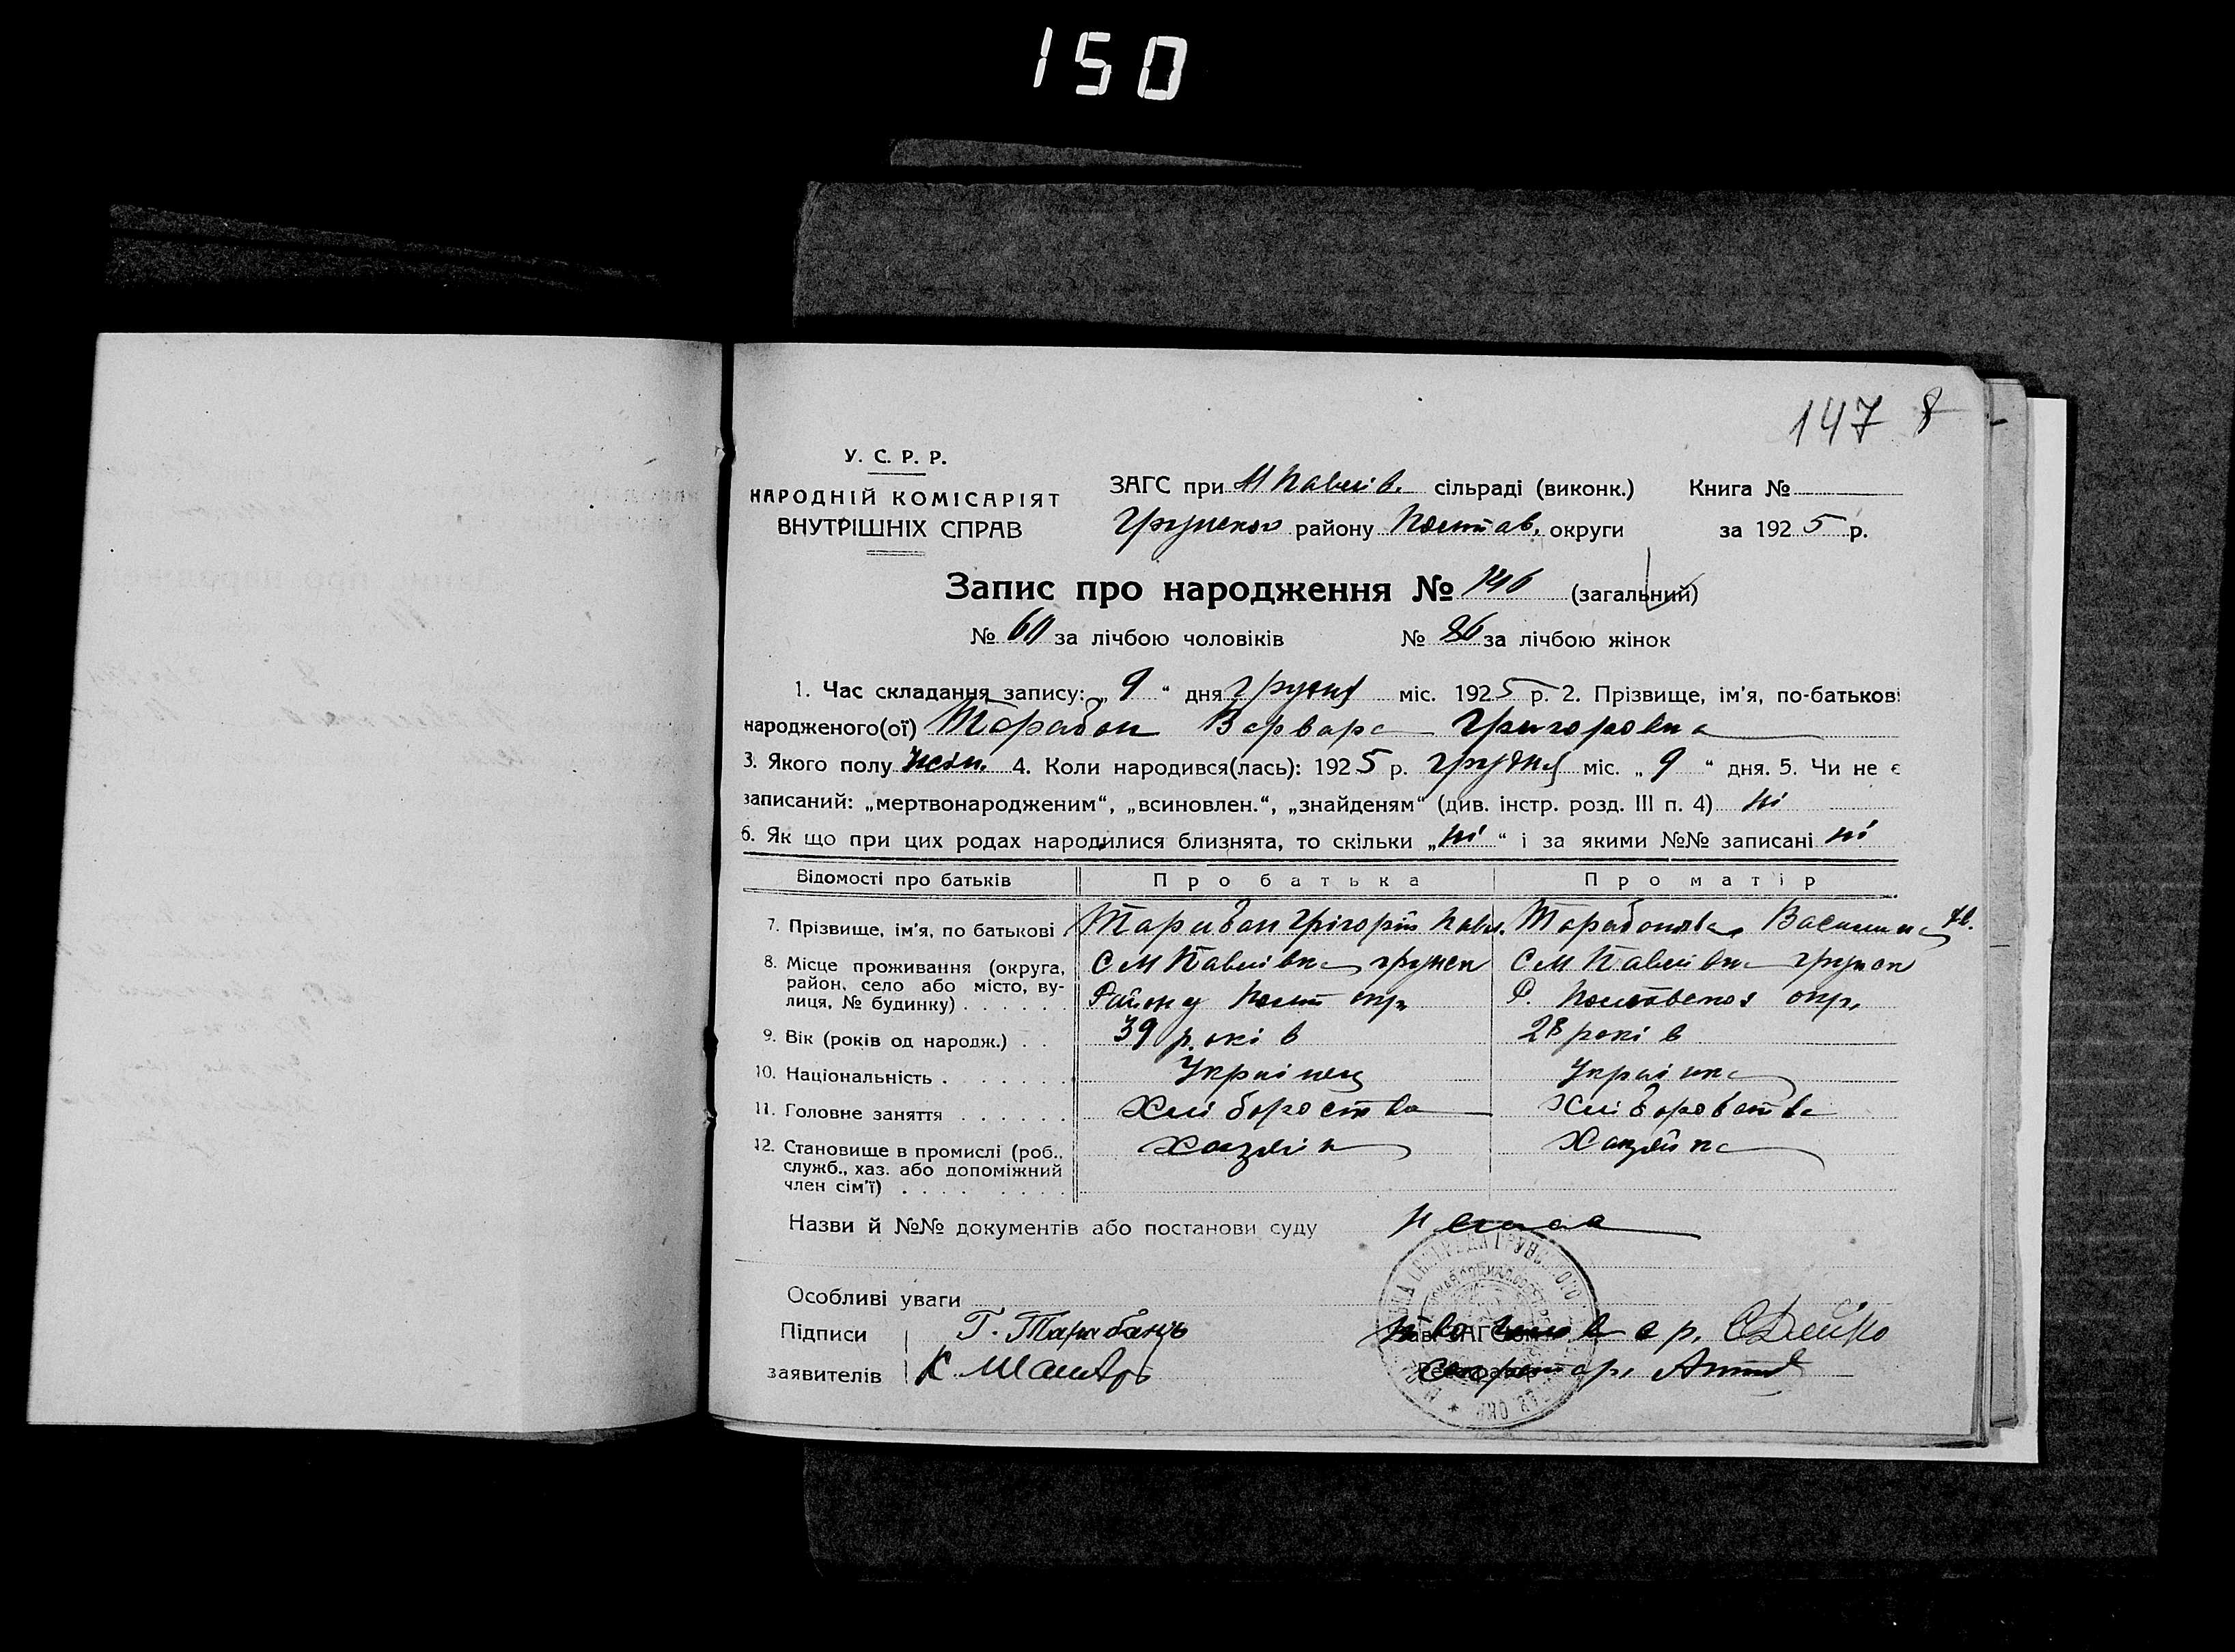 150
147 8
У. С. Р. Р.
НАРОДНІЙ КОМІСАРІЯТ
ВНУТРІШНІХ СПРАВ
ЗАГС при М Павлів. сільраді (виконк.) Книга №
Грунского району Полтав. округи за 1925 р.
Запис про народження № 146 (загальний)
№ 60 за лічбою чоловіків № 86 за лічбою жінок
1. Час складання запису: „ 9 “ дня грудня міс. 1925 р. 2. Прізвище, ім’я, по-батькові
народженого(ої) Торабан Варвара Григоровна
3. Якого полу жін. 4. Коли народився(лась): 1925 р. грудня міс. „ 9 “ дня. 5. Чи не є
записаний: „мертвонародженим“, „всиновлен.“, „знайденям“ (див. інстр. розд. III п. 4) ні
6. Як що при цих родах народилися близнята, то скільки „ні“ і за якими №№ записані ні
Відомості про батьків Про батька Про матір
7. Прізвище, ім’я, по батькові Тарабан Грігорій Павл. Торабанова Василина
8. Місце проживання (округа, район, село або місто, вулиця, № будинку) С М Павлівка грунск С М Павлівка грунск
Району Полт окр. Р. Полтавскоя окр.
9. Вік (років од народж.) 39 років 28 років
10. Національність Українец Українка
11. Головне заняття Хліборобства Хліборобства
12. Становище в промислі (роб., служб., хаз. або допоміжний член сім’ї) Хазяін Хазяйка
Назви й №№ документів або постанови суду немає
Особливі уваги
Підписи Г. Тарабанъ Зав. ЗАГС’ом
заявителів К. Секретар